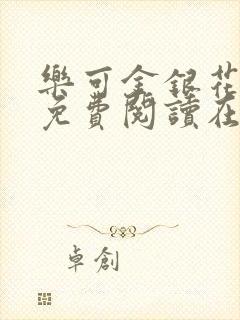 樂可金銀花
免費閱讀在
卓創